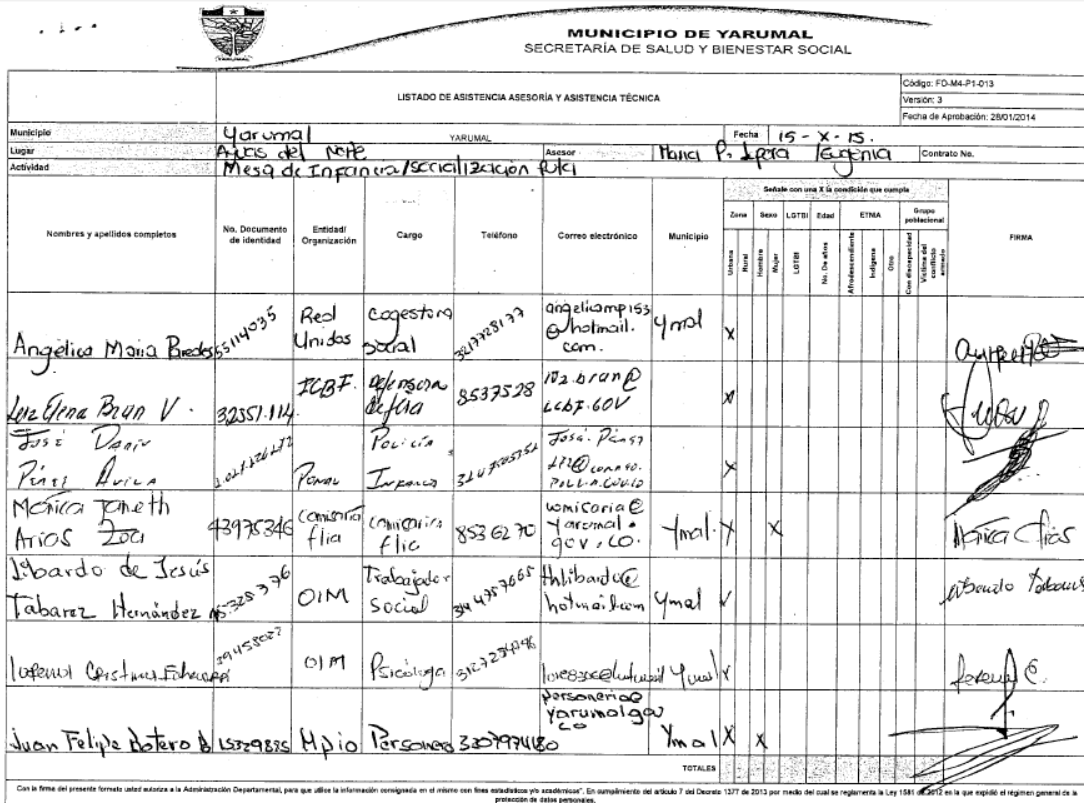 YARUMAL
MUNICIPIO DE YARUMAL
SECRETARÍA DE SALUD Y BIENESTAR SOCIAL
LISTADO DE ASISTENCIA ASESORÍA Y ASISTENCIA TÉCNICA
Código: FD-M4-P1-013
Versión: 3
Fecha de Aprobación: 28/01/2014
Municipio Yarumal YARUMAL Fecha 15-X-15.
Lugar del Norte Asesor P. Eugenia Contrato No.
Actividad Mesa de Infancia/socialización
Señale con una X la condición que cumple
Nombres y apellidos completos No. Documento de identidad Entidad/ Organización Cargo Teléfono Correo electrónico Municipio Zona Sexo LGTBI Edad ETNIA Grupo poblacional FIRMA
Urbana Rural Hombre Mujer LGTBI No. De años Afrodescendiente Indígena Otro Con discapacidad Víctima del conflicto armado
Angélica Maria Paredes 55114035 Red Unidos cogestora social 3217728177 angelicamp153 @hotmail. com. Ymal X
Luz Elena Bran V. 32351.114 ICBF. defensora 8537528 icbf.gov X
José Darío Pérez Avila Ponal Policía Infancia X
Monica Janeth Arios 43975346 comisaria flia comisaria flia 8536270 comisaria@ yarumal. gov.co. Ymal. X X Monica Arias
Libardo de Jesús Tabarez Hernández OIM Trabajador Social 3144757665 hotmail.com Ymal
39458027 OIM Psicóloga Ymal X
Juan Felipe Botero B 15329885 Mpio Personero 3207974180 personeria@ yarumal.gov co Ymal X X
TOTALES
Con la firma del presente formato usted autoriza a la Administración Departamental, para que utilice la información consignada en el mismo con fines estadísticos y/o académicos". En cumplimiento del artículo 7 del Decreto 1377 de 2013 por medio del cual se reglamenta la Ley 1581 de 2012 en la que expidió el régimen general de la
protección de datos personales.